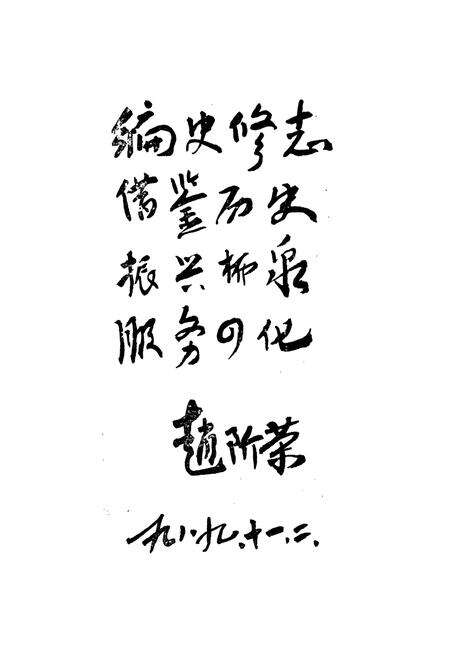 编史修志
借鉴历史
振兴柳泉
服务四化
趙阶荣
一九八九.十一.二.